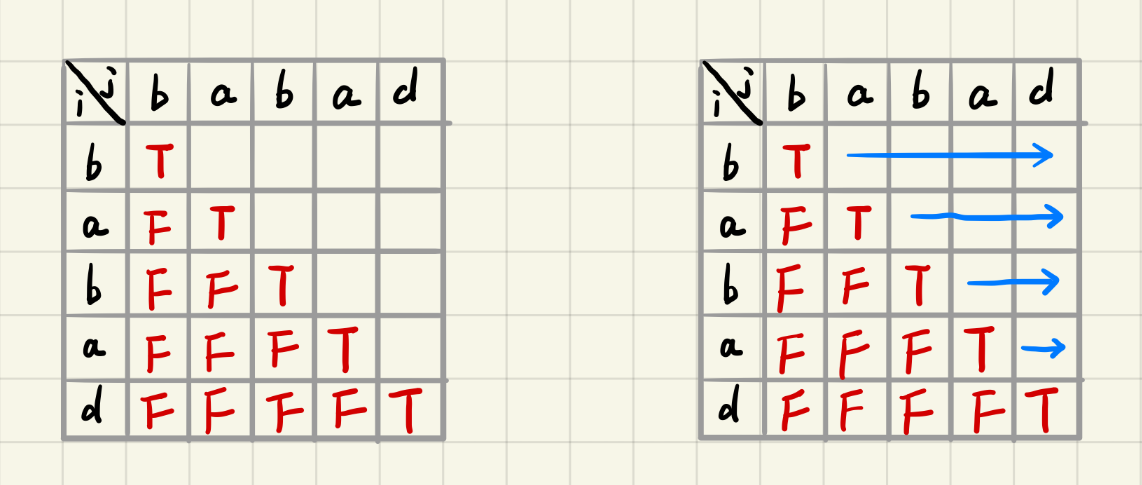 i j b a b a d
b T
a F T
b F F T
a F F F T
d F F F F T
i j b a b a d
b T
a F T
b F F T
a F F F T
d F F F F T